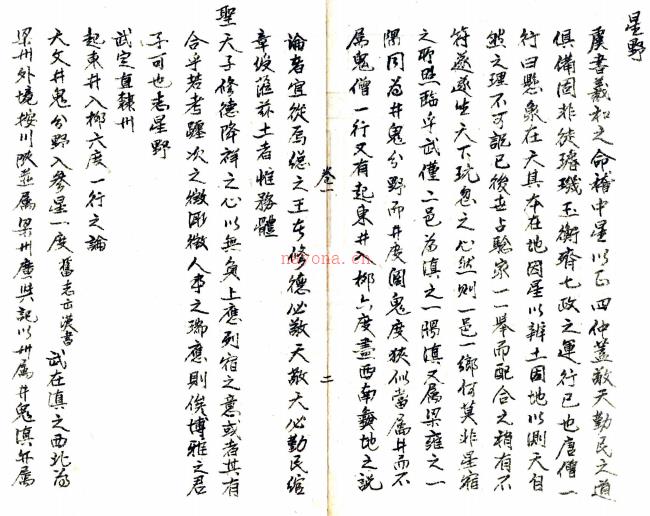 星野
虞書羲和之命稽中星以正四仲蓋敬天勤民之道
俱備固非徒璿璣玉衡齊七政之運行已也唐僧一
行曰懸象在天其本在地因星以辨土因地以測天自
然之理不可誣已後世占驗家一一舉而配合之稍有不
符遂生天下玩忽之心然則一邑一鄉何莫非星宿
之所照臨乎武僅二邑為滇之一隅滇又屬梁雍之一
隅固為井鬼分野而井度闊鬼度狹似當屬井而不
屬鬼僧一行又有起東井入柳六度盡西南彝地之說
卷一
二
論者宜從焉總之王者修德必敬天敬天必勤民綰
章綬蒞茲土者惟務體
聖
天子修德降祥之心以無負上應列宿之意或者其有
合乎若考躔次之微渺徵人事之瑞應則俟博雅之君
子可也志星野
武定直隸州
起東井入柳六度一行之論
天文井鬼分野入參星一度 舊志出漢書 武在滇之西北為
梁州外境按川陝並屬梁州廣輿記以州屬井鬼滇亦屬
nerona.cn